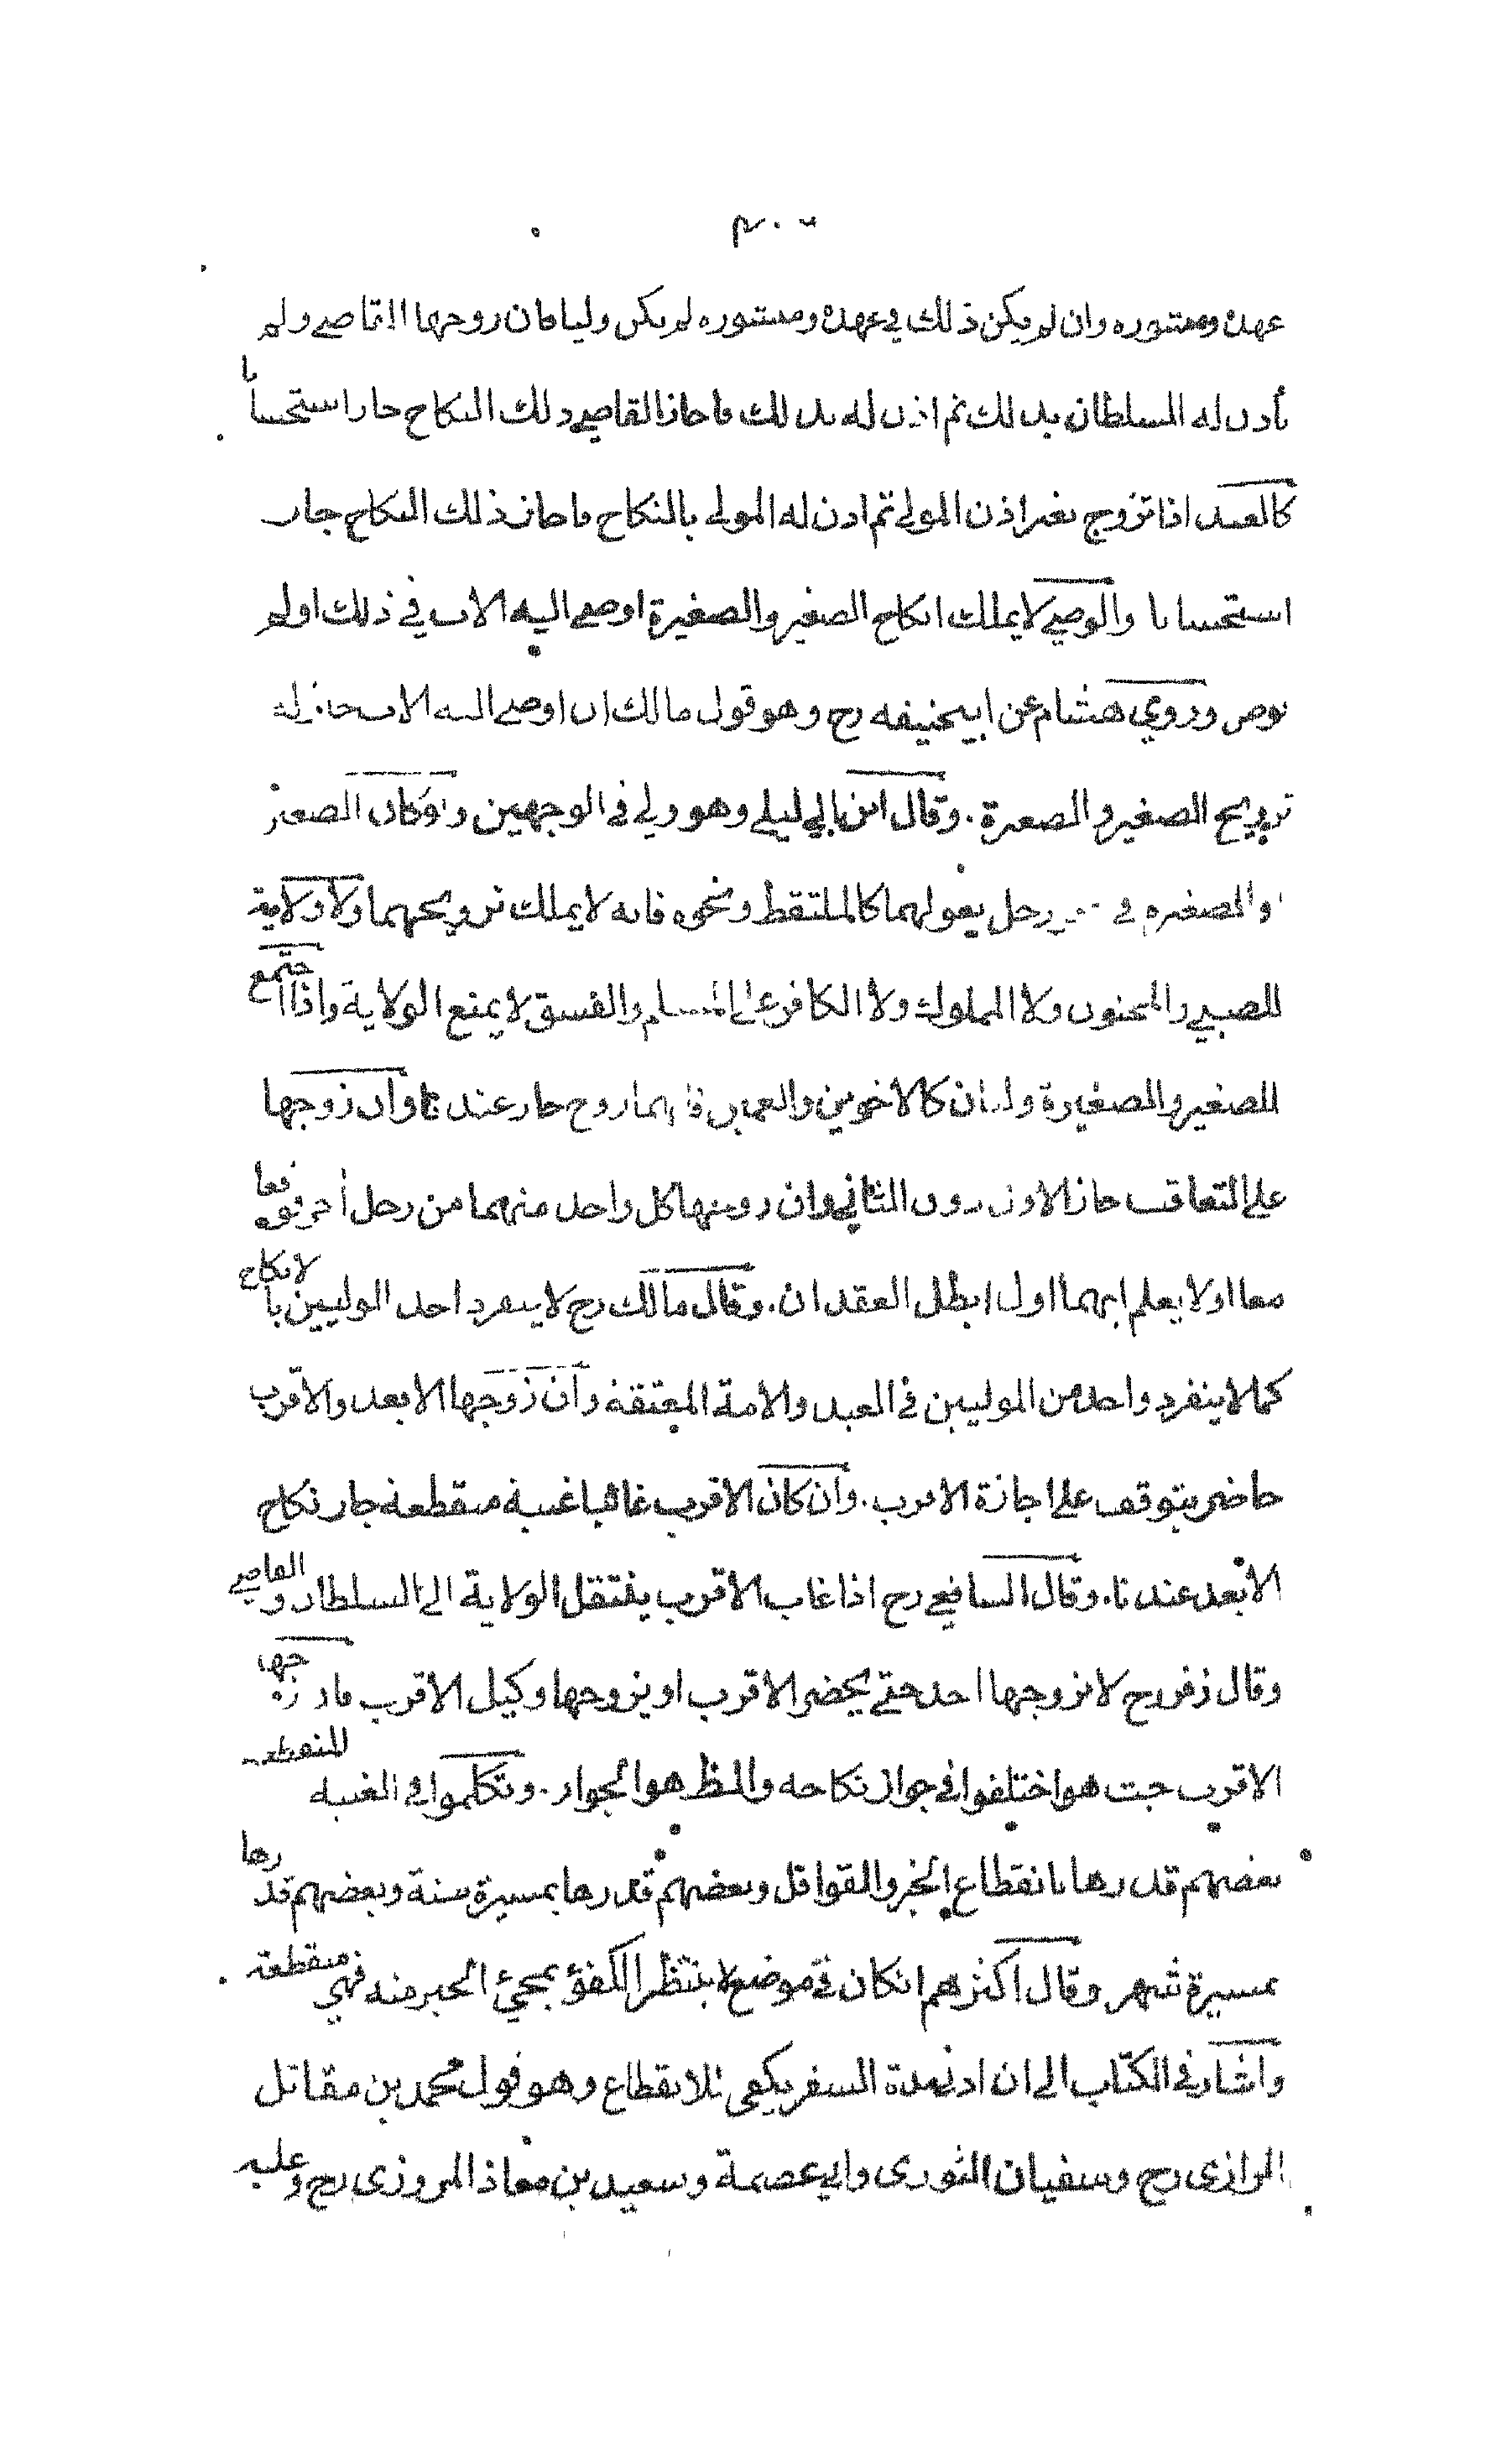 عهده ومنشوره وان لم يكن ذلك في عهده ومنشوره لم يكن وليا فان زوجها القاضي ولم
يأذن له السلطان بذلك ثم اذن له بذلك فاجاز القاضي ذلك النكاح جاز استحسانا
كالعبد اذا تزوج بغير اذن المولى ثم اذن له المولى بالنكاح فاجاز ذلك النكاح جاز
استحسانا والوصي لا يملك انكاح الصغير والصغيرة اوصى اليه الاب في ذلك او لم
يوص وروي هشام عن ابيحنيفه رح وهو قول مالك ان اوصى اليه الاب جاز له
تزويج الصغير والصغيرة. وقال ابن ابي ليلى وهو ولي في الوجهين وان كان الصغير
والصغيره في رجل يعولهما كالملتقط ونحوه فانه لا يملك تزويجهما ولا ولاية
للصبي والمجنون ولا المملوك ولا الكافر على المسلم والفسق لا يمنع الولاية واذا اجتمع
للصغير والصغيرة وليان كالاخوين والعمين فايهما زوج جاز عندنا وان زوجها
على التعاقب جاز الاول دون الثاني وان زوجها كل واحد منهما من رجل آخر فوقعا
معا او لا يعلم ايهما اول ابطل العقدان. وقال مالك رح لا ينفرد احد الوليين بالانكاح
كما لا ينفرد واحد من الموليين في العبد والامة المعتقة وان زوجها الابعد والاقرب
حاضر يتوقف على اجازة الاقرب. وان كان الاقرب غائبا غيبة منقطعة جاز نكاح
الابعد عندنا. وقال الشافعي رح اذا غاب الاقرب ينتقل الولاية الى السلطان والقاضي
وقال زفر رح لا يزوجها احد حتى يحضر الاقرب او يزوجها وكيل الاقرب فان زوجها
الاقرب حيث هو اختلفوا في جواز نكاحه والظاهر هو الجواز. وتكلموا في الغيبه المنقطعة
بعضهم قدرها بانقطاع الخبر والقوافل وبعضهم قدرها بمسيرة سنة وبعضهم قدرها
بمسيرة شهر وقال اكثرهم ان كان في موضع لا ينتظر الكفؤ بمجيئ الخبر منه فهي منقطعة
واشار في الكتاب الى ان ادنى مدة السفر يكفي للانقطاع وهو قول محمد بن مقاتل
الرازي رح وسفيان الثوري وابي عصمة وسعيد بن معاذ المروزي رح وعليه